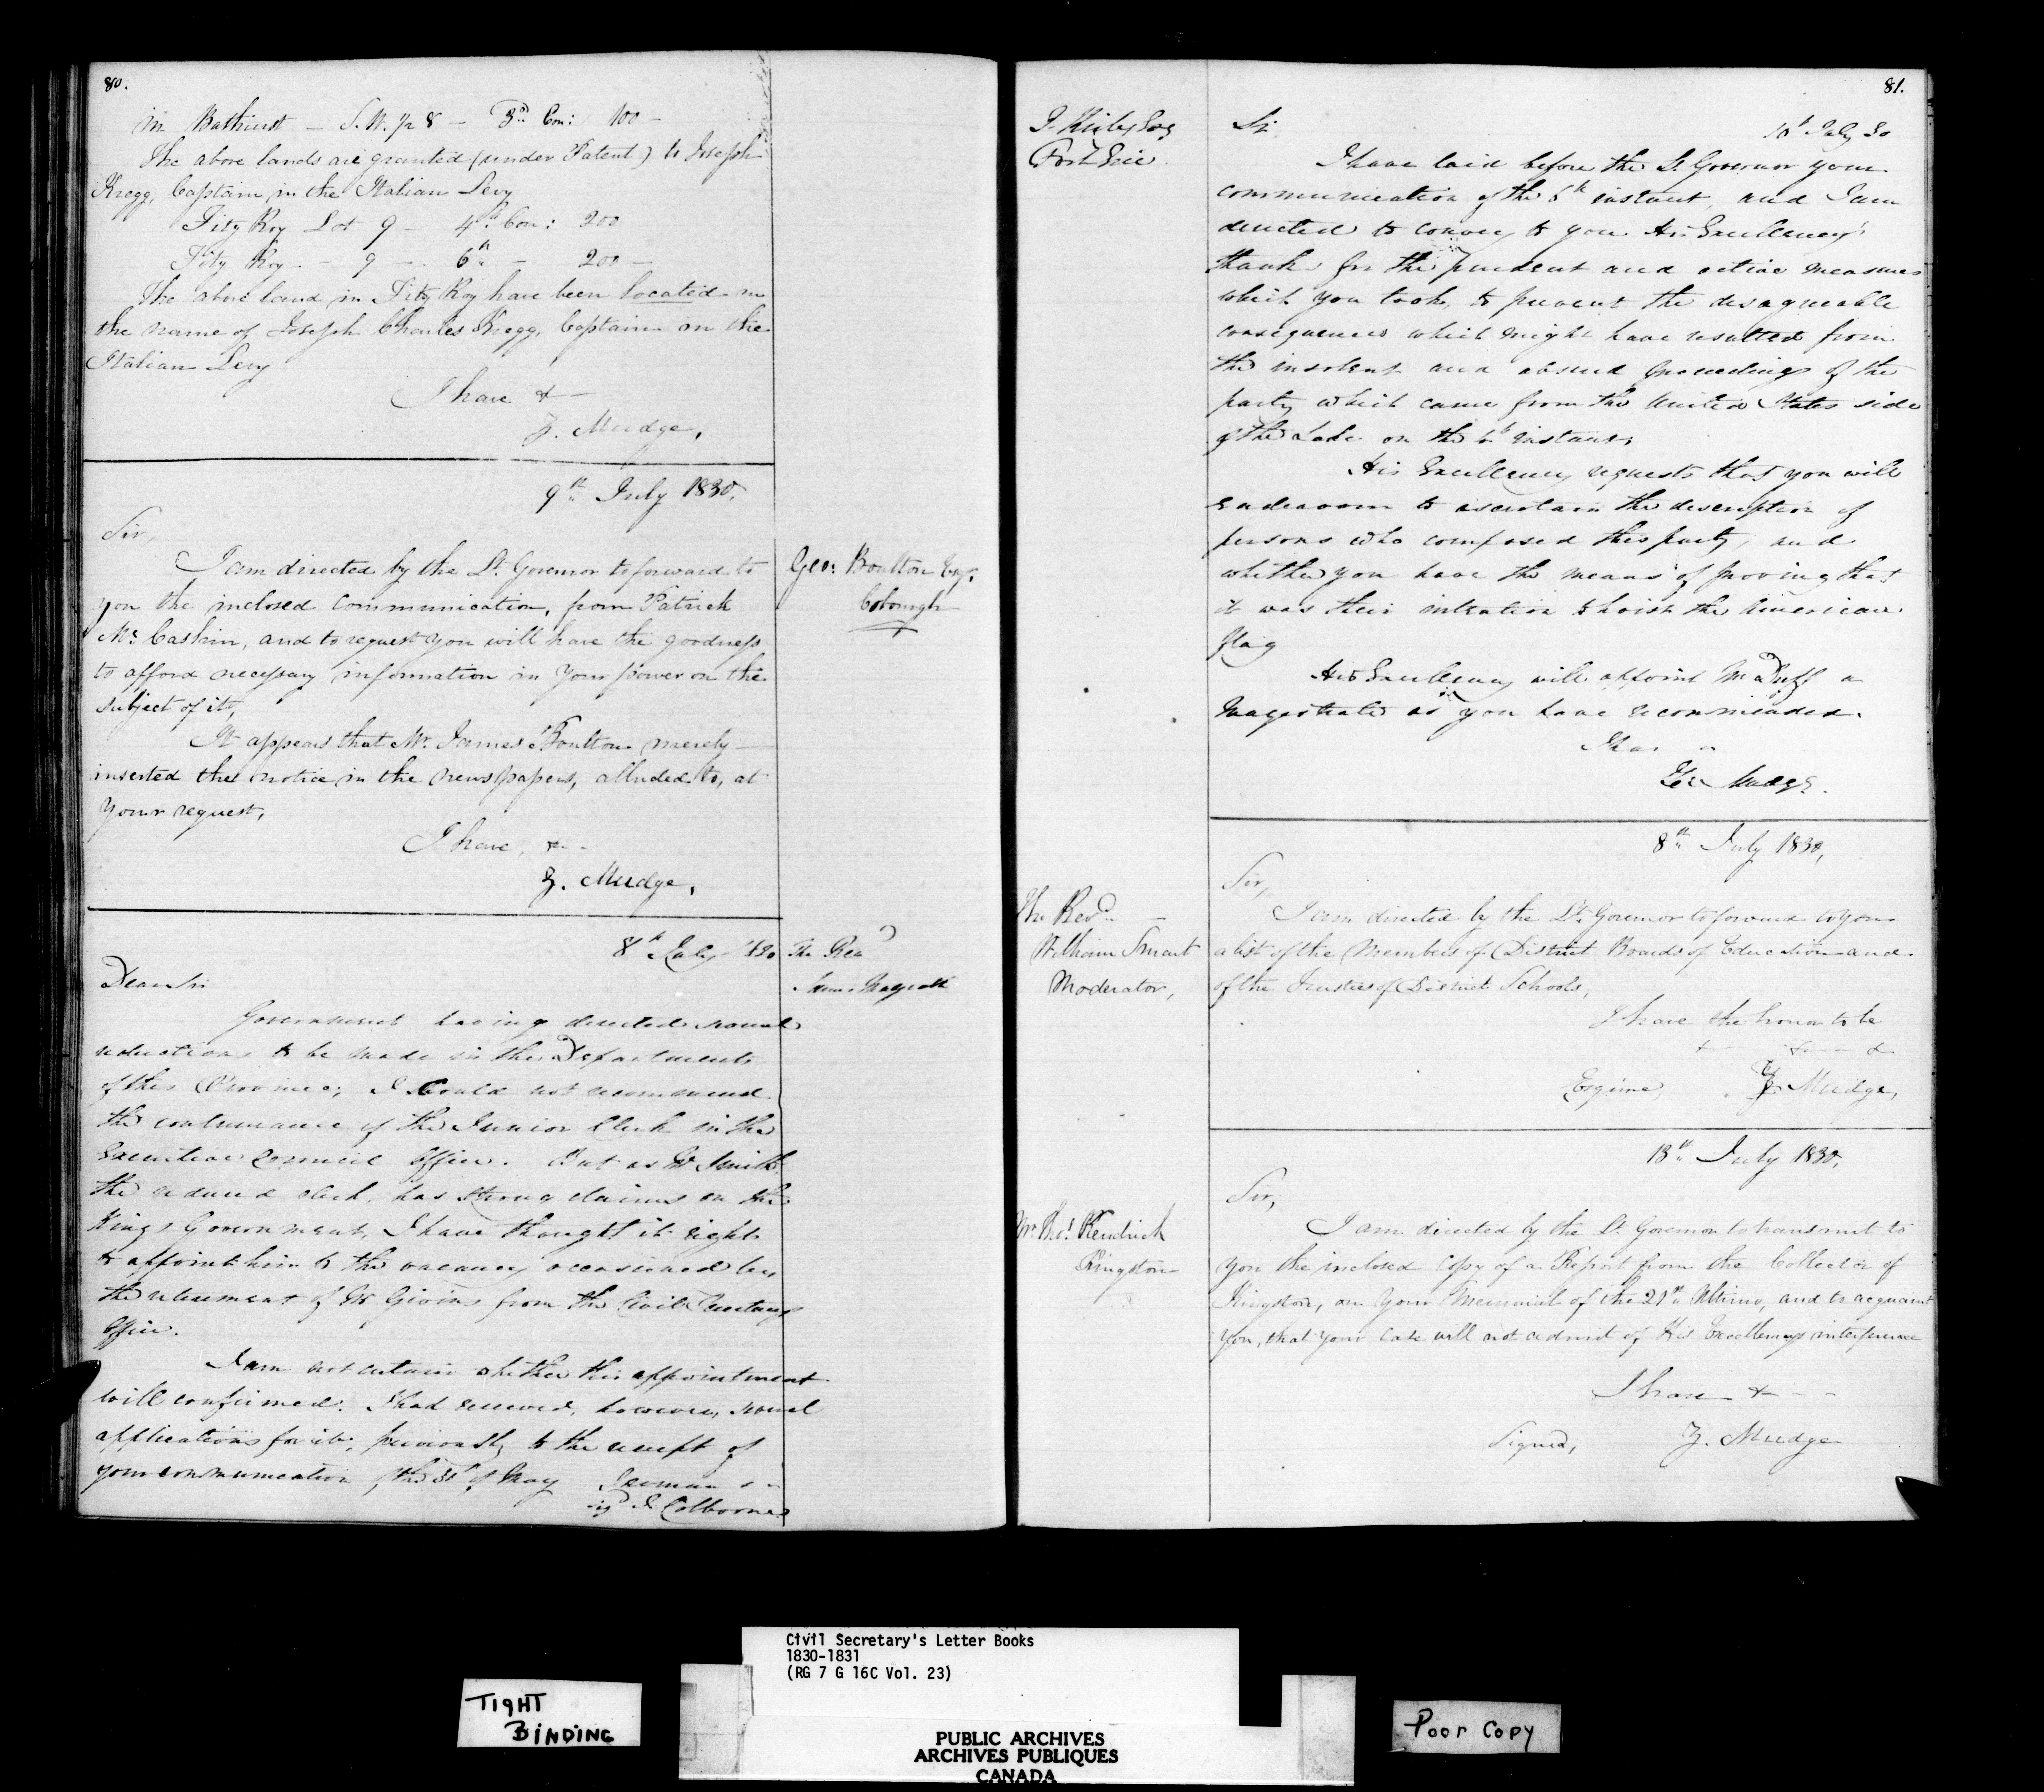 80.
in Bathurst — S.W. ½ 8 — 3rd Con: 100 —
The above lands are granted (under Patent) to Joseph
Kregg, Captain in the Italian Levy
Fitz Roy Lot 9 — 4th Con: 200
Fitz Roy — 9 — 6th — 200 —
The above land in Fitz Roy have been located in
the name of Joseph Charles Kregg, Captain in the
Italian Levy
I have &—
Z. Mudge,
9th July 1830,
Sir,
I am directed by the Lt. Governor to forward to
you the inclosed communication, from Patrick
Mc Caskin, and to request you will have the goodness
to afford necessary information in your power on the
subject of it,
It appears that Mr. James Boulton merely
inserted the notice in the newspapers, alluded to, at
your request,
I have, &—
Z. Mudge,
Geo: Boulton Esqr.
Cobourgh
8th July 1830
The Revd
James Magrath
Dear Sir
Government having directed several
reductions to be made in the Departments
of this Province; I could not recommend
the continuance of the Junior Clerk in the
Executive Council Office. But as Mr Smith
the reduced clerk, has strong claims on the
Kings Government, I have thought it right
to appoint him to the vacancy occasioned by
the retirement of Mr Givins from the Civil Secretarys
Office.
I am not certain whether this appointment
will confirmed. I had received, however, several
applications for it, previously to the receipt of
your communication of the 31st of May
J. Colborne
81.
J. Kirby Esq
Fort Erie
Sir
10th July 30
I have laid before the Lt Governor your
communication of the 5th instant, and I am
directed to convey to you His Excellency's
thanks for the prudent and active measures
which you took, to prevent the disagreeable
consequences which might have resulted from
the insolent and absurd proceedings of the
party which came from the United States side
of the Lake on the instant.
His Excellency requests that you will
endeavour to ascertain the description of
persons who composed this party, and
whether you have the means of proving that
it was their intention to hoist the American
flag
His Excellency will appoint Mr Duff a
Magistrate as you have recommended.
I have
Z. Mudge.
8th July 1830,
The Revd.
William Smart
Moderator,
Sir,
I am directed by the Lt. Governor to forward to you
a list of the Members of District Boards of Education and
of the Trustees of District Schools,
I have the honor to be
&— &— &
Esquire, Z Mudge,
13th July 1830,
Mr Thos Kendrick
Kingston
Sir,
I am directed by the Lt. Governor to transmit to
you the inclosed copy of a Report from the Collector of
Kingston, on your Memorial of the 21st Ultimo, and to acquaint
you, that your case will not admit of His Excellencys interference
I have &— —
Signed, Z. Mudge
Civil Secretary's Letter Books
1830-1831
(RG 7 G 16C Vol. 23)
TIGHT
BINDING
PUBLIC ARCHIVES
ARCHIVES PUBLIQUES
CANADA
Poor Copy